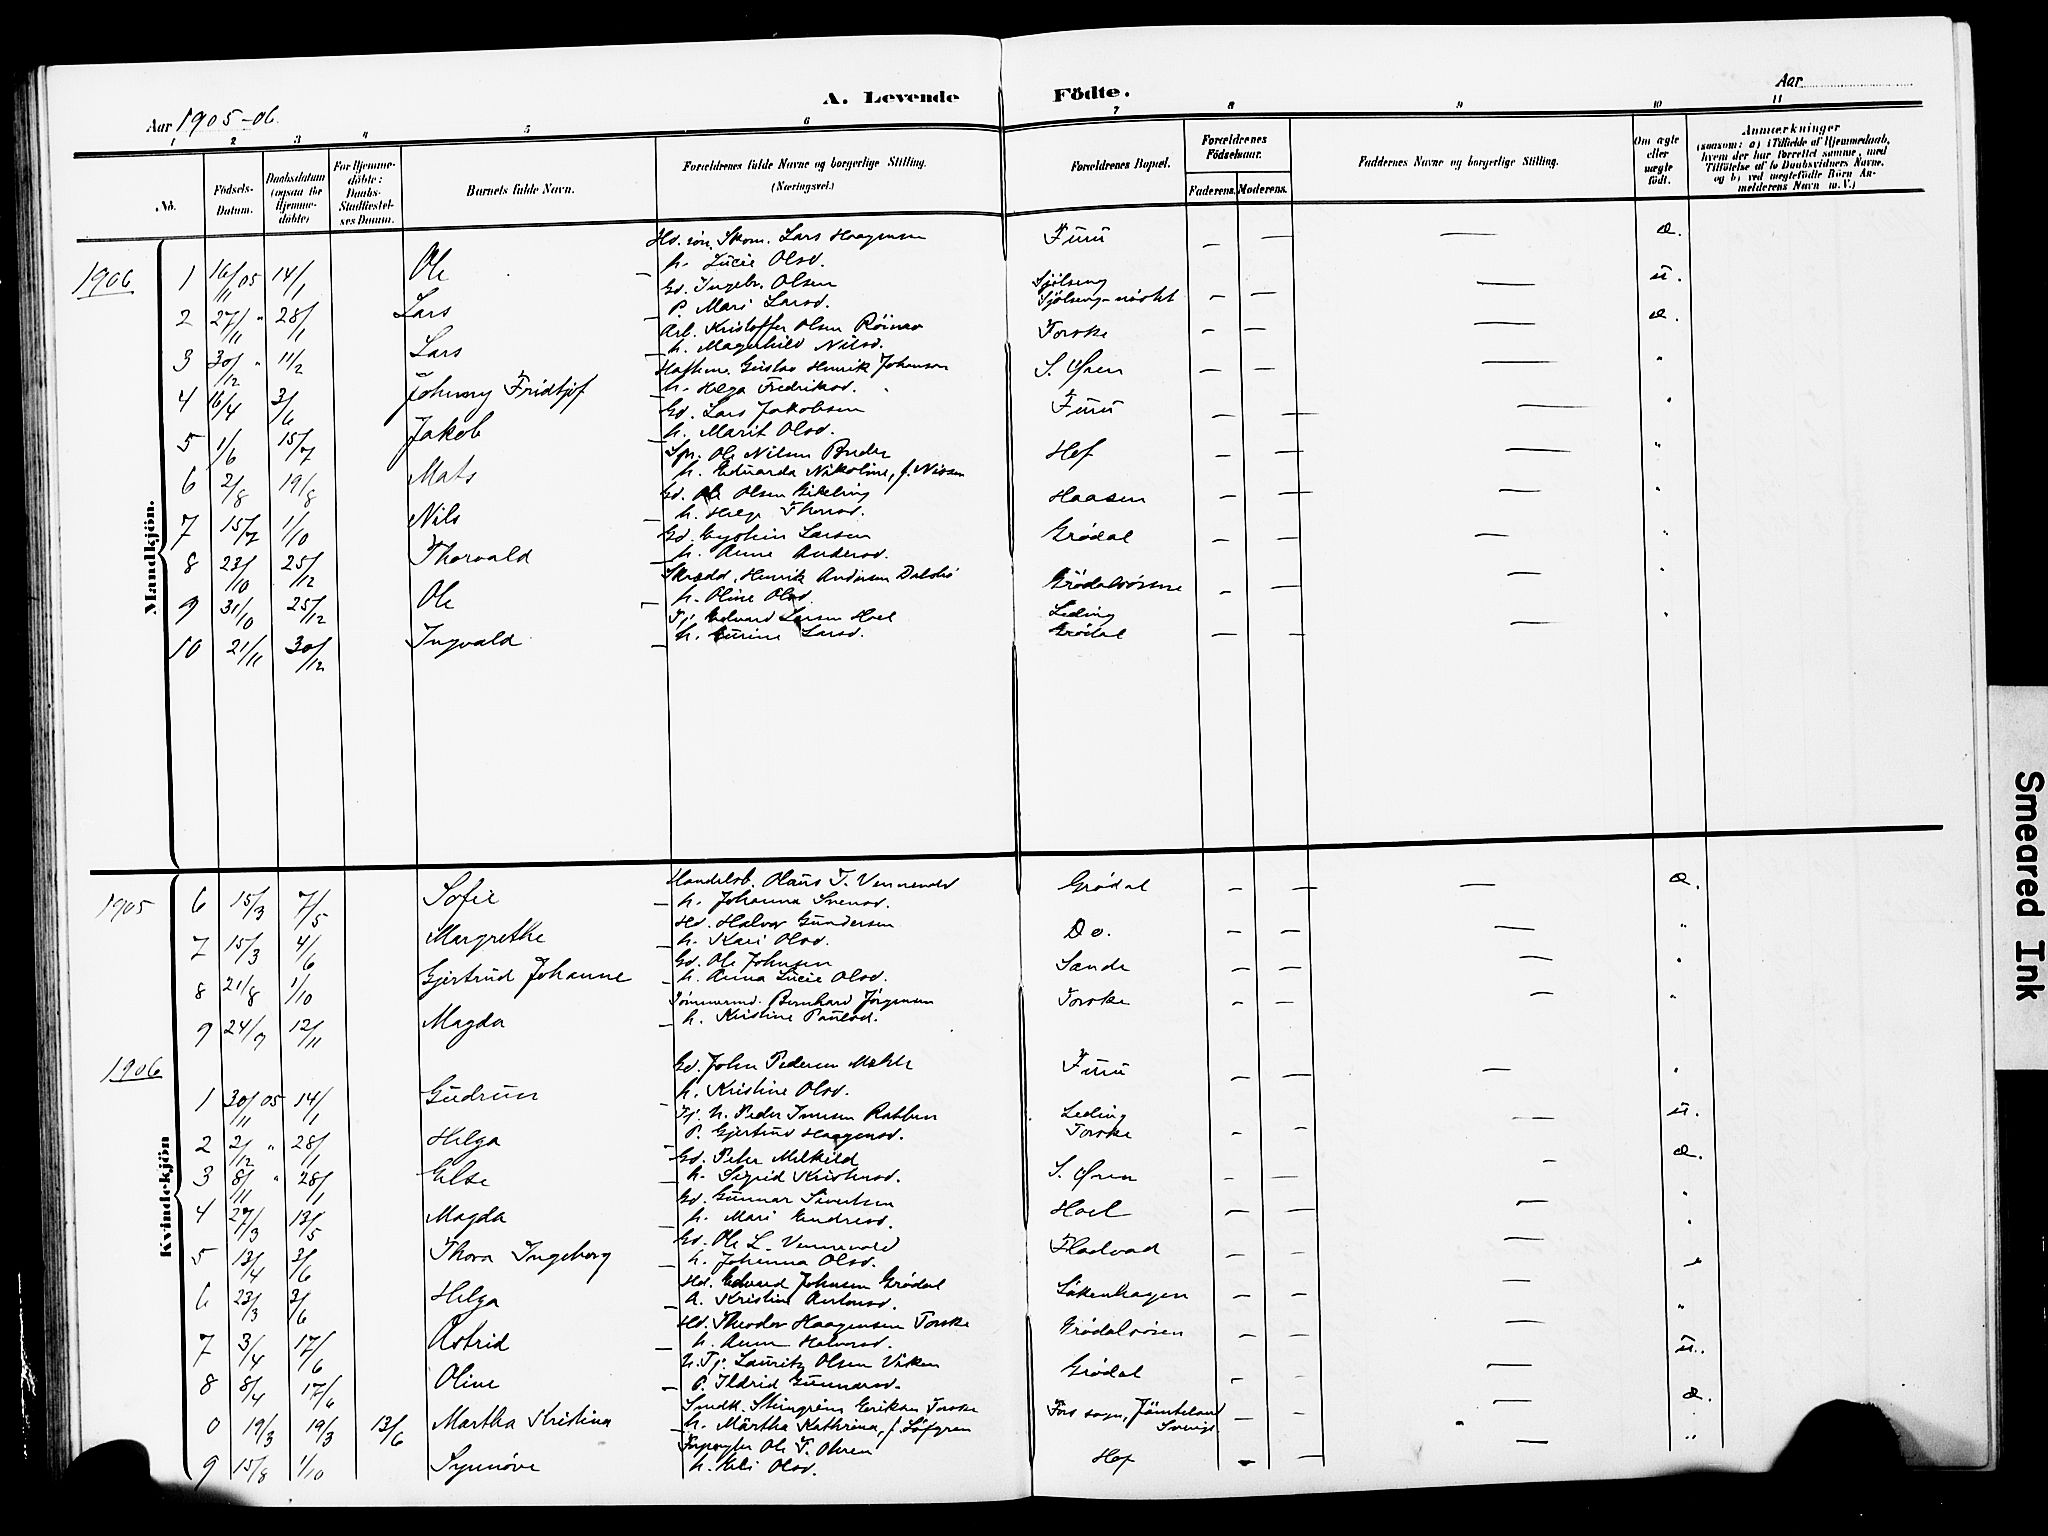 Aar 1905-06.
A. Levende Födte.
Aar
1 2 3 4 5 6 7 8 9 10 11
No.
Födsels-Datum.
Daabsdatum (ogsaa for Hjemmedöbte)
For Hjemmedöbte: Daabs-Stadfæstelses Datum.
Barnets fulde Navn.
Forældrenes fulde Navne og borgerlige Stilling. (Næringsvei.)
Forældrenes Bopæl.
Forældrenes Födselsaar.
Faderens. Moderens.
Faddernes Navne og borgerlige Stilling.
Om ægte eller uægte födt.
Anmærkninger
(saasom: a) i Tilfælde af Hjemmedaab, hvem der har forrettet samme, med Tilföielse af to Daabsvidners Navne, og b) ved uægtefödte Börn Anmelderens Navn m. V.)
Mandkjön.
1906
Hd. sön, Skom. Lars Haagensen Furu — — — æ.
1 16/11 05 14/1 Ole — h. Lucie Olsd.
Gd. Ingebr. Olsen Sjölseng u.
2 27/11 " 28/1 Lars — P. Mari Larsd. Sjölseng-
Arb. Kristoffer Olsen Torske — — — æ.
3 30/12 " 11/2 Lars — h. Magnhild Nilsd.
Gustav Henrik Johansen S. Øren — — — "
4 16/4 3/6 Johnny Fridtjof — h. Helga Fredriksd.
Gd. Lars Jakobsen Furu — — — "
5 1/6 15/7 Jakob — h. Marit Olsd.
Ole Nilsen Hof — — — "
6 2/8 19/8 Mats h. Eduarda Nikoline, f. Nissen
Gd. Ole Olsen Gikling Haasen — — — "
7 15/7 1/10 Nils — h. Helga Thorsd.
Gd. Eystein Larsen Grödal — — — "
8 23/10 25/12 Thorvald h. Anne Andersd.
Skrædd. Henrik Andersen Dalsbö Grödalsösene — — — "
9 31/10 25/12 Ole — h. Oline Olsd.
Tj. Edvard Larsen Hoel Leding "
10 21/11 30/12 Ingvald — h. Gurine Larsd. Grödal — — —
Kvindekjön
1905
Handelsb. Claus T. Vennevold Grödal — — — æ.
6 15/3 7/5 Sofie — h. Johanna Svensd.
Hd. Halvor Gundersen Do. — — — "
7 15/3 4/6 Margrethe — h. Kari Olsd.
Gd. Ole Johnsen Sande — — — "
8 21/8 1/10 Gjertrud Johanne — h. Anna Lucie Olsd.
Tömmermd. Bernhard Jörgensen Torske — — — "
9 24/9 12/11 Magda — h. Kristine Paulsd.
1906
Gd. John Pedersen Furu — — — "
1 30/11 05 14/1 Gudrun h. Kristine Olsd.
Tj. U. Peder Iversen Leding u.
2 2/12 " 28/1 Helga P. Gjertrud Haagensd. Torske — — —
Gd. Peter Melkild S. Øren — — — æ.
3 8/11 " 28/1 Else — h. Sigrid Kristensd.
Gd. Gunnar Sivertsen Hoel — — — "
4 27/3 13/5 Magda — h. Mari Endresd.
Gd. Ole L. Vennevold Fladvad — — — "
5 13/4 3/6 Thora Ingeborg — h. Johanna Olsd.
Hd. Edvard Johnsen Grödal Løkenhagen — — — "
6 23/3 3/6 Helga — h. Kristine Antonsd.
Hd. Theodor Haagensen Torske Grödalsösen — — — "
7 3/4 17/6 Astrid — h. Anne Halvorsd.
U. Tj. Lauritz Olsen Viken Grödal — — — u.
8 8/4 17/6 Olive — P. Ildrid Gunnarsd.
Steingrim Eriksen Torske Fors sogn, Jämteland Sverige — — æ.
0 19/3 19/3 13/6 Martha Kristina — h. Märtha Kathrina, f. Löfgren
Ole T. Ohren Hof — — — "
9 15/8 1/10 Synnöve h. Eli Olsd.
Smeared Ink